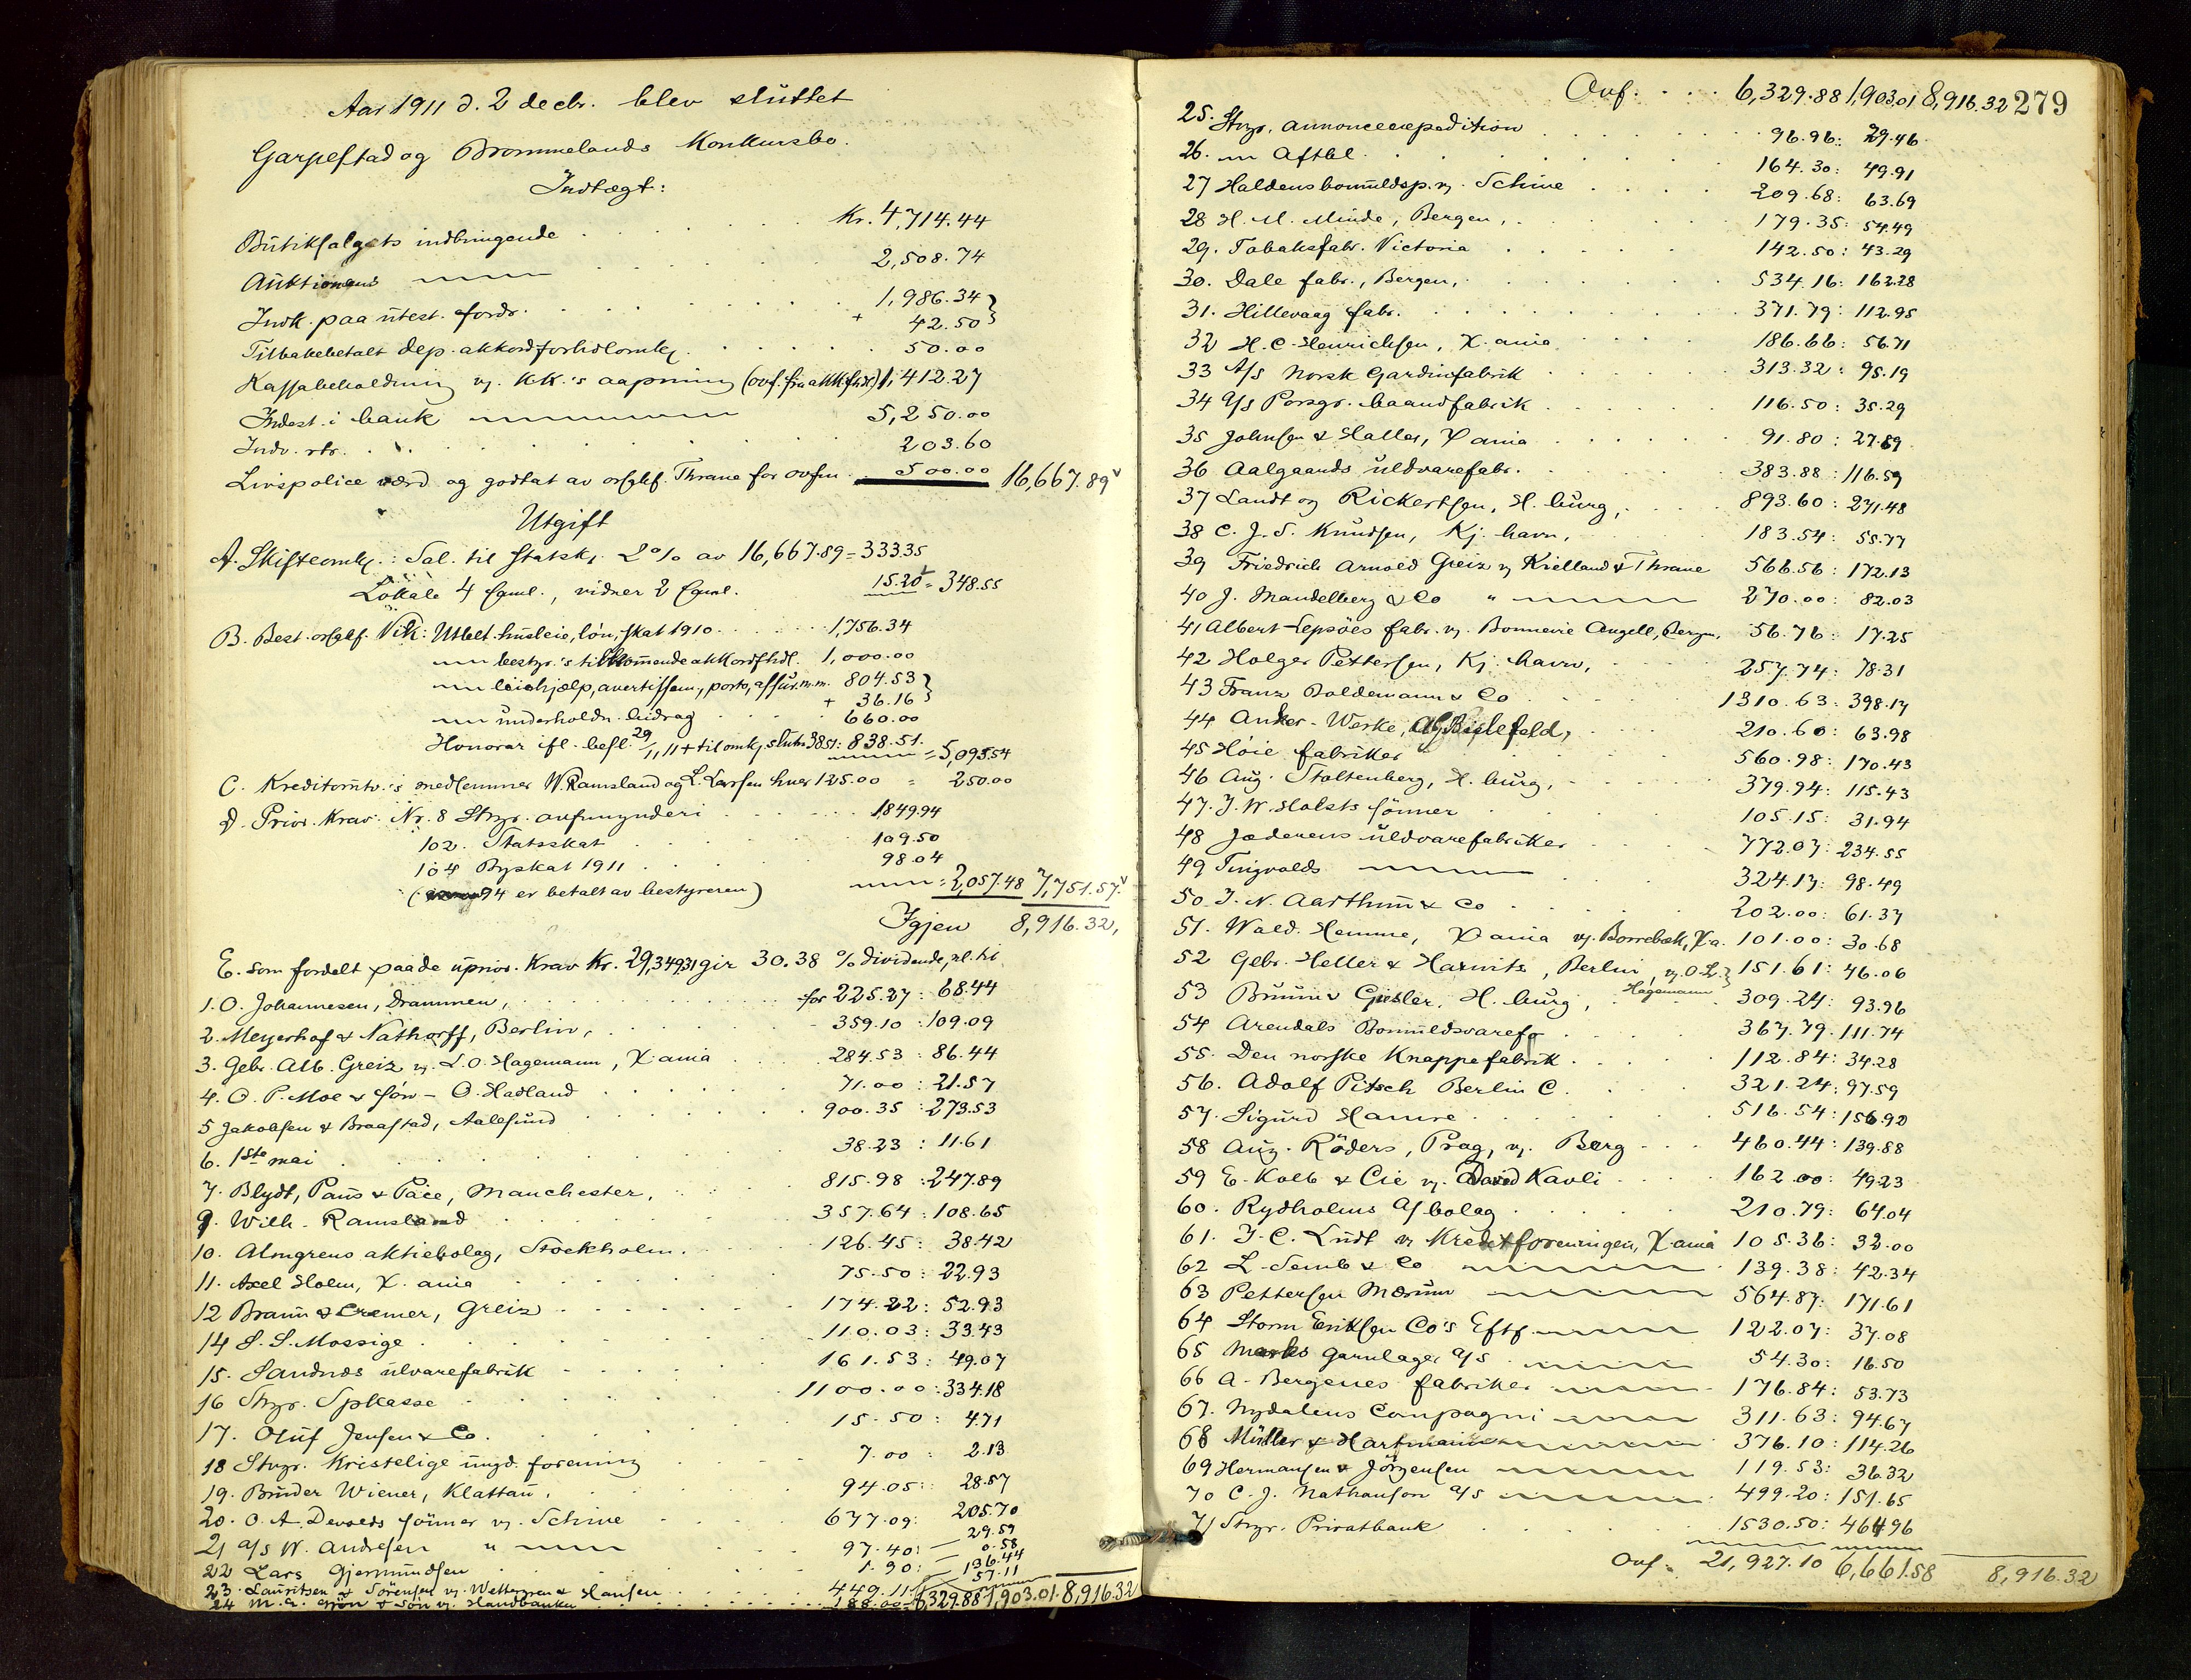 Aar 1911 d. 2 decbr. blev sluttet
Garpestad og Brommelands Konkursbo.
Indtægt:
Butiksalgets indbringende Kr. 4,714.44
Auktionens —„— 2,508.74
Indk. paa utest. fordr. 1,986.34
+ 42.50
Tilbakebetalt dep. akkordforhdlomk. 50.00
Kassabeholdning v. KK.'s aapning (ovf. fra akk.fhdl) 1,412.27
Indest. i bank —„— 5,250.00
Indv. rtr. 203.60
Livspolice værd og godtat av orsgkf. Thrane for ovfn. 500.00 16,667.89
Utgift
A. Skifteomk.: Sal. til statsk. 2% av 16,667.89 = 333.35
Lokale 4 fgml., vidner 2 fgml. 15.20 = 348.55
B. Best. orsgkf. Vik: Utbet. husleie, løn, skat 1910 1,756.34
—„— bestyr.'s tilkommende akkordfhdl. 1,000.00
—„— leiehjælp, avertissem., porto, assur. m.m. 804.53
+ 36.16
—„— underholdn. bidrag 660.00
Honorar ifl. besl. 29/11 11 + til omk. slutn. 38.51: 838.51 = 5,095.54
C. Kreditorutv.'s medlemmer W. Ramsland og L. Larsen hver 125.00 = 250.00
D. Prior. Krav: Nr. 8 Stvgr. overformynderi 1849.94
102. Statsskat 109.50
104 Byskat 1911 98.04
(94 er betalt av bestyreren) = 2,057.48 7,751.57
Igjen 8,916.32
E. som fordelt paa de uprior. Krav Kr. 29,349.31 gir 30.38 % dividende, nl. til
1. O. Johannesen, Drammen, for 225.27: 68.44
2. Meyerhof & Nathorff, Berlin, 359.10: 109.09
3. Gebr. Alb. Greiz v. L. O. Hagemann, X.ania 284.53: 86.44
4. O. P. Moe & søn - O. Hadland 71.00: 21.57
5 Jakobsen & Braastad, Aalesund 900.35: 273.53
6. 1ste mai 38.23: 11.61
7. Blydt, Paus & Pace, Manchester, 815.98: 247.89
9. Wilh. Ramsland 357.64: 108.65
10. Almgrens aktiebolag, Stockholm. 126.45: 38.42
11. Axel Holm, X.ania 75.50: 22.93
12 Braun & Cremer, Greiz 174.22: 52.93
14 S. S. Mossige 110.03: 33.43
15. Sandnæs ulvarefabrik 161.53: 49.07
16 Stvgr. Spkasse 1100.00: 334.18
17. Oluf Jensen & Co. 15.50: 4.71
18 Stvgr. Kristelige ungd. forening 7.00: 2.13
19. Brüder Wiener, Klattau, 94.05: 28.57
20. O. A. Devolds sønner v. Schive 677.09: 205.70
21 A/S W. Andresen " —„— 97.40: 29.59
22 Lars Gjermundsen 1.90: 0.58
23. Lauritsen & Sørensen v. Wettergren & Hansen 449.11: 136.44
24 M. G. Grøn & søn v. Handbanken 188.00: 57.11
6,329.88 1,903.01 8,916.32
Ovf. 6,329.88 1,903.01 8,916.32 279
25. Stvgr. annonceexpedition 96.96: 29.46
26. —„— Aftbl. 164.30: 49.91
27 Haldens bomuldsp. v. Schive 209.68: 63.69
28 H. M. Minde, Bergen, 179.35: 54.49
29. Tobaksfabr. Victoria 142.50: 43.29
30. Dale fabr., Bergen, 534.16: 162.28
31. Hillevaag fabr. 371.79: 112.95
32 H. C. Henrichsen, X.ania 186.66: 56.71
33 A/S Norsk Gardinfabrik 313.32: 95.19
34 A/S Porsgr. baandfabrik 116.50: 35.29
35 Johnsen & Haller, X.ania 91.80: 27.89
36 Aalgaards uldvarefabr. 383.88: 116.59
37 Landt og Rickertsen, H.burg, 893.60: 271.48
38 C. J. S. Knudsen, Kj.havn, 183.54: 55.77
39 Friedrich Arnold Greiz v. Kielland & Thrane 566.56: 172.13
40 J. Mandelberg & Co " —„— 270.00: 82.03
41 Albert Lepsöes fabr. v. Bonnevie Angell, Bergen, 56.76: 17.25
42 Holger Pettersen, Kj.havn, 257.74: 78.31
43 Franz Boldemann & Co 1310.63: 398.17
44 Anker-Werke, AG, Bielefeld, 210.60: 63.98
45 Høie fabriker 560.98: 170.43
46 Aug. Stoltenberg, H.burg, 379.94: 115.43
47. J. W. Holsts sønner 105.15: 31.94
48 Jæderens uldvarefabriker 772.07: 234.55
49 Tingvolds —„— 324.17: 98.49
50 J. N. Aarthun & Co 202.00: 61.37
51. Wald. Hemme, X.ania v. Borrebæk, X.a. 101.00: 30.68
52 Gebr. Heller & Harwitz, Berlin, v. O. L. Hagemann 151.61: 46.06
53 Bruun & Giesler, H.burg, 309.24: 93.96
54 Arendals Bomuldsvarefa 367.79: 111.74
55. Den norske Knappefabrik 112.84: 34.28
56. Adolf Pitsch Berlin C. 321.24: 97.59
57. Sigurd Hamre 516.54: 156.92
58 Aug. Röders, Prag, v. Berg 460.44: 139.88
59 E. Kolb & Cie v. David Kavli 162.00: 49.23
60. Rydholms A/bolag 210.79: 64.04
61. J. C. Ludt v. Kreditforeningen, X.ania 105.36: 32.00
62 L. Semb & Co —„— 139.38: 42.34
63 Pettersen Mærum —„— 564.87: 171.61
64 Storm Eriksen Co's Eftf. —„— 122.07: 37.08
65 Marks garnlager A/S —„— 54.30: 16.50
66 A. Bergenes fabriker —„— 176.84: 53.73
67. Nydalens Compagni —„— 311.63: 94.67
68 Müller & Hartmann —„— 376.10: 114.26
69 Hermansen & Jörgensen —„— 119.53: 36.32
70 C. J. Nathanson A/S —„— 499.20: 151.65
71 Stvgr. Privatbank 1530.50: 464.96
Ovf. 21,927.10 6,661.58 8,916.32